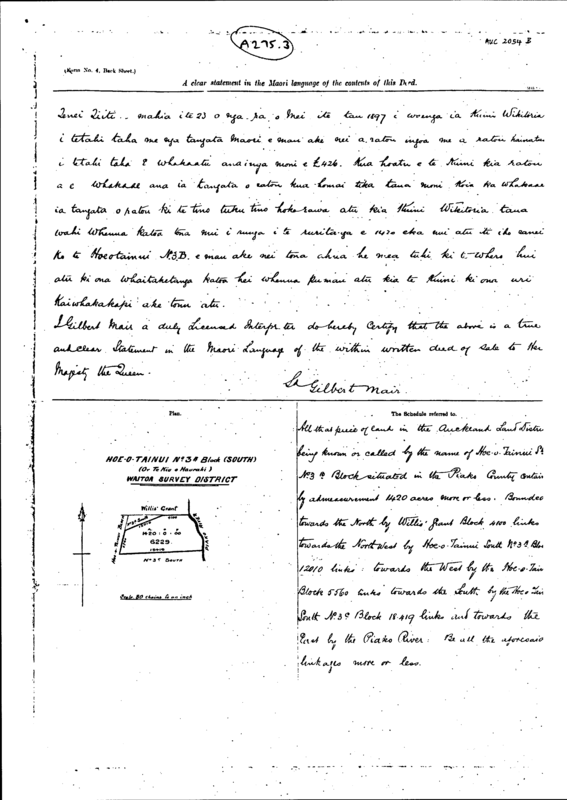 A275.3
AUC 2054 B
(Form No. 4, Back Sheet.)
A clear statement in the Maori language of the contents of this Deed.
Tenei Tiiti mahia i te 23 o nga ra o Mei i te tau 1897 i waenga ia Kuini Wikitoria
i tetahi taha me nga tangata Maori e mau ake nei a ratou ingoa me a ratou
i tetahi taha E whakaatu ana inga moni e £426. Kua hoatu e te Kuini kia ratou
a e whakaae ana ia tangata o ratou kua homai tika tana moni Koia ka whakaae
ia tangata o ratou ki te tino tuku tino hoko rawa atu kia Kuini Wikitoria tana
wahi whenua katoa tona nui i runga i te ruritanga e 1420 eka nui atu iti iho ranei
ko te Hoeotainui No 3B. e mau ake nei tona ahua he mea tuhi ki te Whero hui
atu ki ona whaitaketanga katoa hei whenua pumau atu kia te Kuini ki ona uri
Kaiwhakakapi ake tonu atu.
I Gilbert Mair a duly Licensed Interpreter do hereby Certify that the above is a true
and clear Statement in the Maori Language of the within written deed of Sale to Her
Majesty the Queen.
Gilbert Mair.
Plan.
HOE-O-TAINUI No 3B Block (SOUTH)
WAITOA SURVEY DISTRICT
Willis' Grant
1420 : 0 : 00
6229
No 3C SOUTH
Scale 80 chains to an inch
The Schedule referred to.
All that piece of land in the Auckland Land Distr
being known or called by the name of Hoe-o-Tainui
No 3B Block situated in the Piako County contain
by admeasurement 1420 acres more or less. Bounded
towards the North by Willis' Grant Block 4100 links
towards the North West by Hoe-o-Tainui South No 3A Blo
12010 links: towards the West by the Hoe-o-Tain
Block 5560 links towards the South by the Hoe-o-Tain
South No 3C Block 18419 links and towards the
East by the Piako River: Be all the aforesaid
linkages more or less.